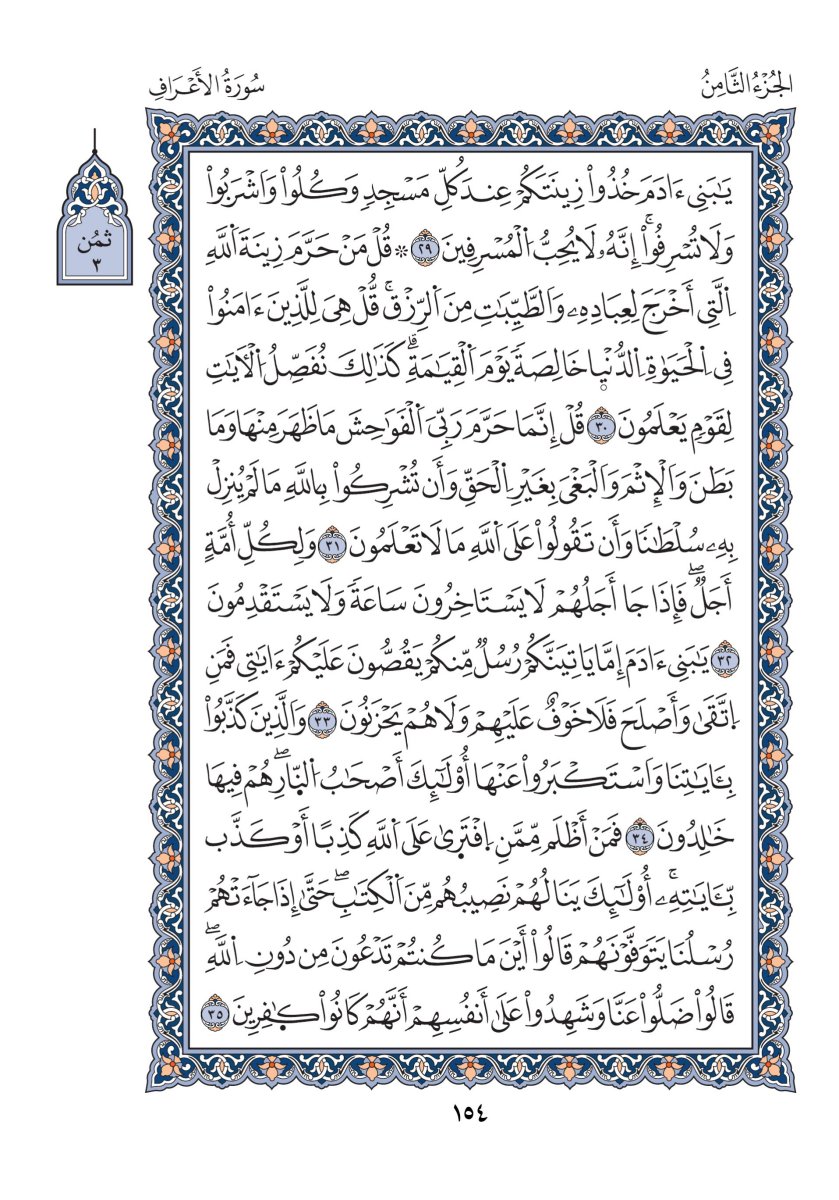 الجُزْءُ الثَّامِنُ
سُورَةُ الأَعْرَافِ
ثُمُن
٣
يَٰبَنِےٓ ءَادَمَ خُذُواْ زِينَتَكُمْ عِندَ كُلِّ مَسْجِدٖ وَكُلُواْ وَاشْرَبُواْ
وَلَا تُسْرِفُوٓاْۚ إِنَّهُۥ لَا يُحِبُّ اُلْمُسْرِفِينَ ٢٩ ۞ قُلْ مَنْ حَرَّمَ زِينَةَ اَللَّهِ
اِلَّتِےٓ أَخْرَجَ لِعِبَادِهِۦ وَالطَّيِّبَٰتِ مِنَ اَلرِّزْقِۚ قُلْ هِيَ لِلَّذِينَ ءَامَنُواْ
فِے اِلْحَيَوٰةِ اِلدُّنْيۭا خَالِصَةٗ يَوْمَ اَلْقِيَٰمَةِۗ كَذَٰلِكَ نُفَصِّلُ اُلْأٓيَٰتِ
لِقَوْمٖ يَعْلَمُونَ ٣٠ قُلْ إِنَّمَا حَرَّمَ رَبِّيَ اَلْفَوَٰحِشَ مَا ظَهَرَ مِنْهَا وَمَا
بَطَنَ وَالْإِثْمَ وَالْبَغْيَ بِغَيْرِ اِلْحَقِّ وَأَن تُشْرِكُواْ بِاللَّهِ مَا لَمْ يُنزِلْ
بِهِۦ سُلْطَٰنٗا وَأَن تَقُولُواْ عَلَى اَللَّهِ مَا لَا تَعْلَمُونَ ٣١ وَلِكُلِّ أُمَّةٍ
أَجَلٞۖ فَإِذَا جَا أَجَلُهُمْ لَا يَسْتَاخِرُونَ سَاعَةٗ وَلَا يَسْتَقْدِمُونَ
٣٢ يَٰبَنِےٓ ءَادَمَ إِمَّا يَاتِيَنَّكُمْ رُسُلٞ مِّنكُمْ يَقُصُّونَ عَلَيْكُمْ ءَايَٰتِے فَمَنِ
اِتَّقَىٰ وَأَصْلَحَ فَلَا خَوْفٌ عَلَيْهِمْ وَلَا هُمْ يَحْزَنُونَ ٣٣ وَالَّذِينَ كَذَّبُواْ
بِـَٔايَٰتِنَا وَاسْتَكْبَرُواْ عَنْهَا أُوْلَٰٓئِكَ أَصْحَٰبُ اُلنّ۪ارِۖ هُمْ فِيهَا
خَٰلِدُونَ ٣٤ فَمَنْ أَظْلَم مِّمَّنِ اِفْتَر۪ىٰ عَلَى اَللَّهِ كَذِبًا أَوْ كَذَّب
بِّـَٔايَٰتِهِۦٓۚ أُوْلَٰٓئِكَ يَنَالُهُمْ نَصِيبُهُم مِّنَ اَلْكِتَٰبِۖ حَتَّىٰٓ إِذَا جَآءَتْهُمْ
رُسْلُنَا يَتَوَفَّوْنَهُمْ قَالُوٓاْ أَيْنَ مَا كُنتُمْ تَدْعُونَ مِن دُونِ اِللَّهِۖ
قَالُواْ ضَلُّواْ عَنَّا وَشَهِدُواْ عَلَىٰٓ أَنفُسِهِمْ أَنَّهُمْ كَانُواْ كٰ۪فِرِينَ ٣٥
١٥٤